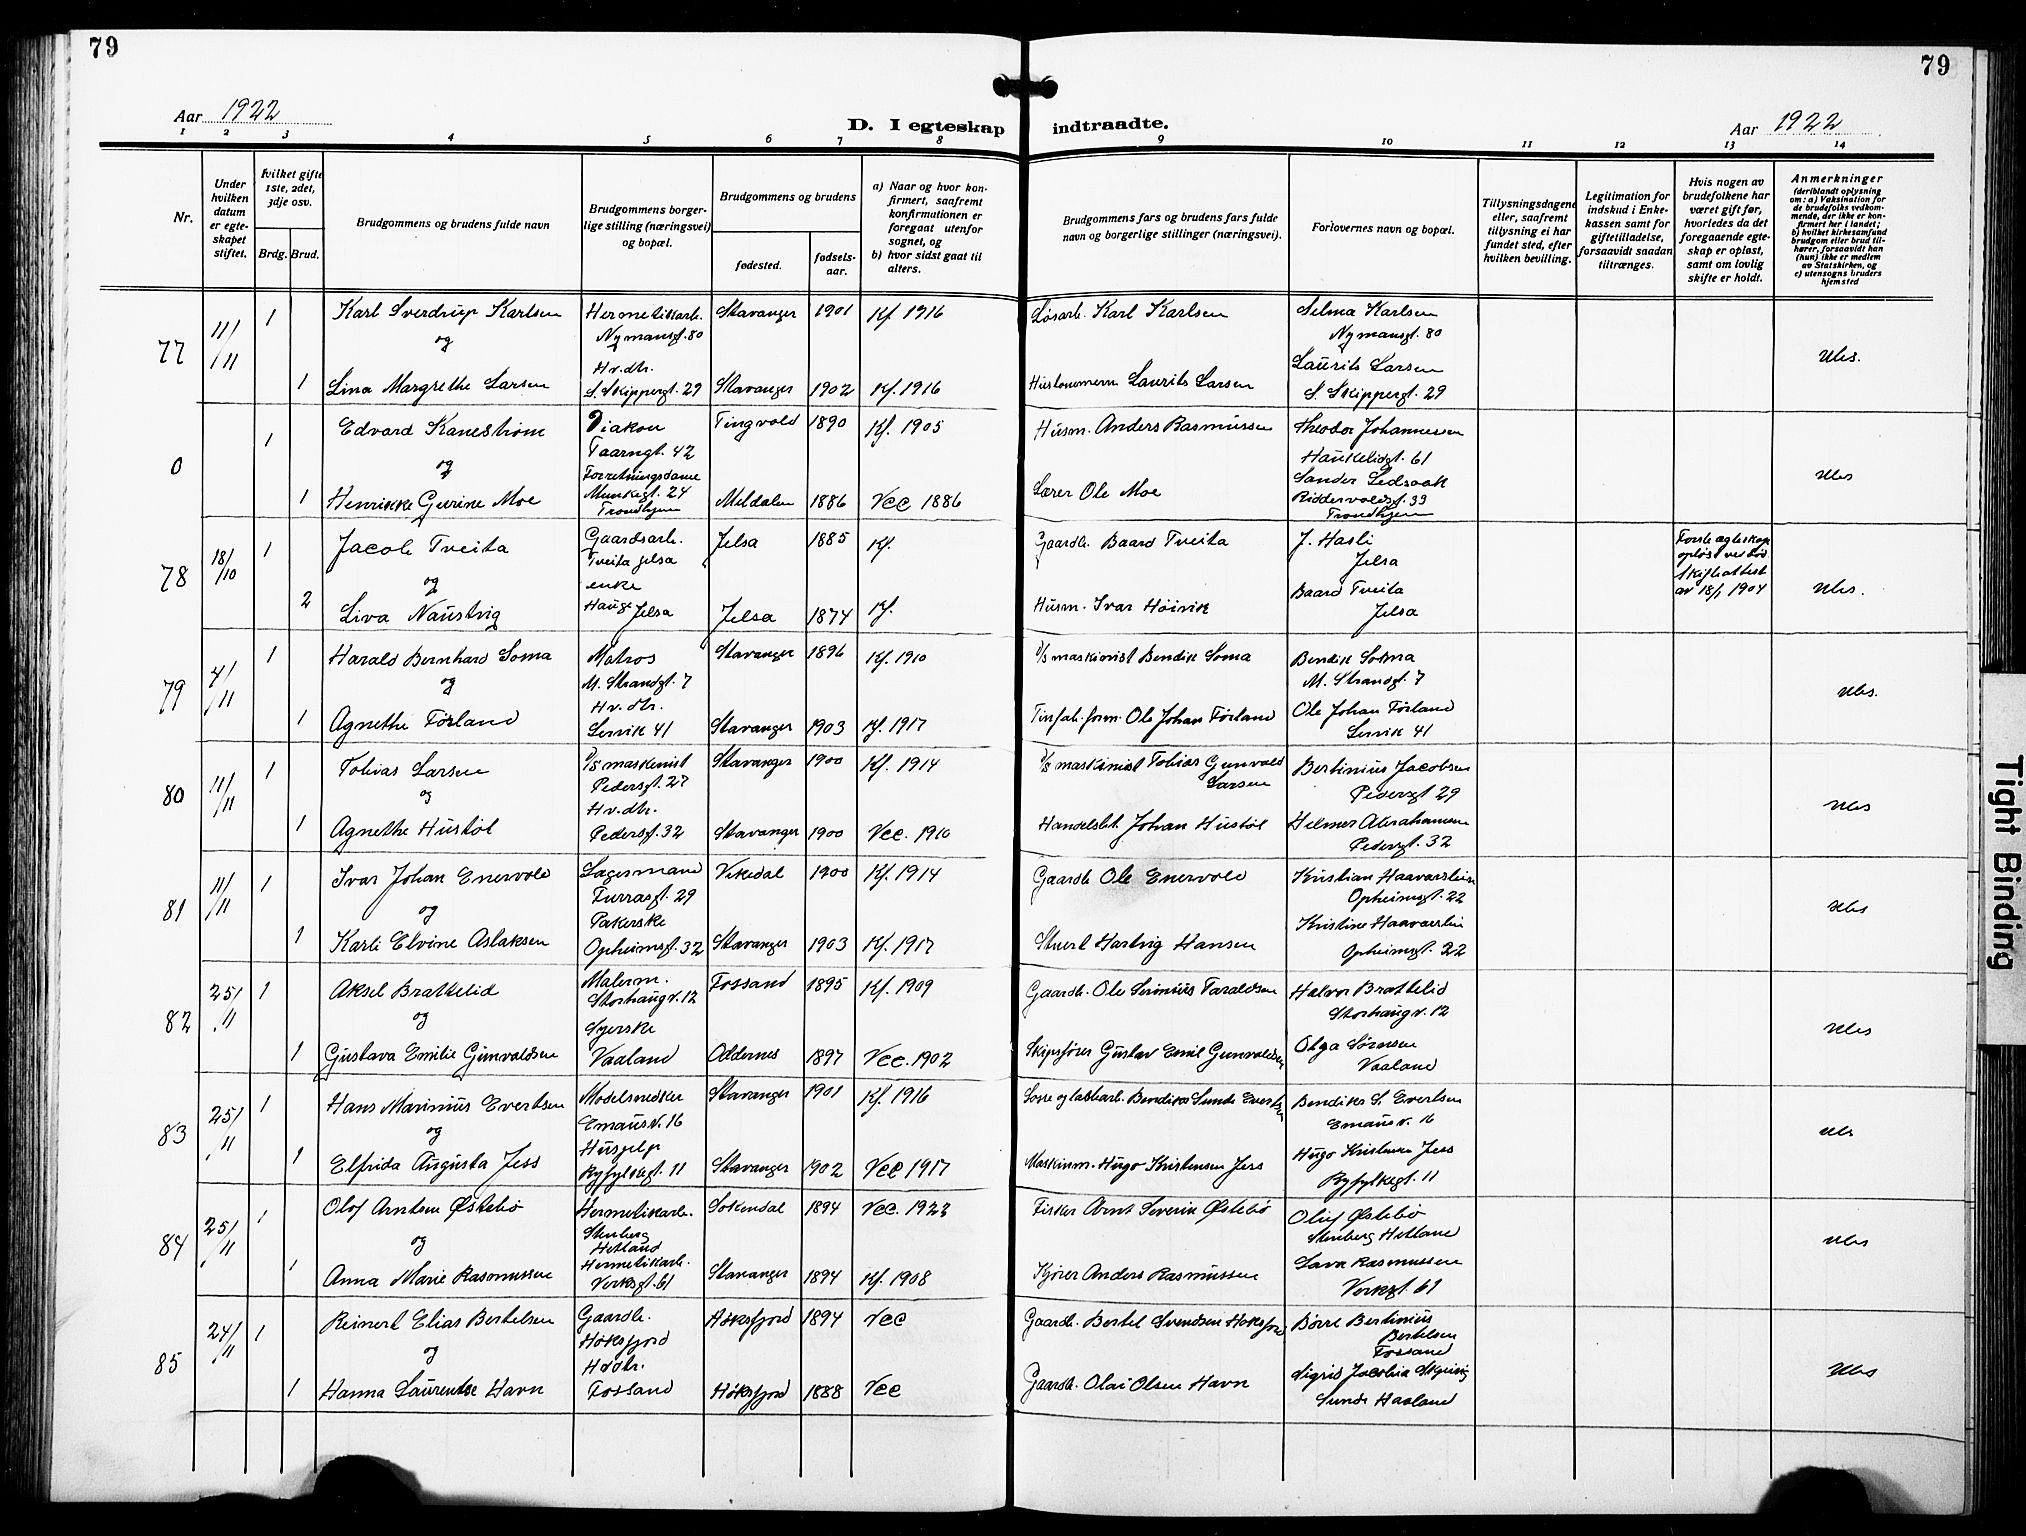 79
79
Aar 1922
D. I egteskap indtraadte.
Aar 1922
1 2 3 4 5 6 7 8 9 10 11 12 13 14
Nr.
Under hvilken datum er egteskapet stiftet.
hvilket gifte 1ste, 2det, 3dje osv.
Brdg. Brud.
Brudgommens og brudens fulde navn
Brudgommens borgerlige stilling (næringsvei) og bopæl.
Brudgommens og brudens
fødested.
fødselsaar.
a) Naar og hvor konfirmert, saafremt konfirmutionen er foregaat utenfor sognet, og
b) hvor sidst gaat til alters.
Brudgommens fars og brudens fars fulde navn og borgerlige stillinger (næringsvei).
Forlovernes navn og bopæl.
Tillysningsdagene eller, saafremt tillysning ei har fundet sted, efter hvilken bevilling.
Legitimation for indskud i Enkekassen samt for giftetilladelse, forsaavidt saadan tiltrænges.
Hvis nogen av brudefolkene har været gift før, hvorledes da det foregaaende egteskap er opløst, samt om lovlig skifte er holdt.
Anmerkninger
(deriblandt oplysning om: a) Vaksination for de brudefolks vedkommende, der ikke er konfirmert her i landet; b) hvilket kirkesamfund brudgom eller brud tilhører, forsaavidt han (hun) ikke er medlem av Statskirken, og c) utensogns bruders hjemsted
77 11/11 1 Karl Sverdrup Karlsen Hermetikarb. Nymansgt. 80 Stavanger 1901 Kf. 1916 Løsarb. Karl Karlsen Selma Karlsen Nymansgt. 80
og
1 Lina Margrethe Larsen Hv.dtr. S. Skippergt. 29 Stavanger 1902 Kf. 1916 Laurits Larsen Laurits Larsen S. Skippergt. 29 Ubs.
0 1 Edvard Kanestrøm Diakon Taarngt. 42 Tingvold 1890 Kf. 1905 Husm. Anders Rasmussen Theodor Johannessen Haukelidgt. 61
og
1 Henrikke Gurine Moe Forretningsdame Munkegt. 24 Trondhjem Meldalen 1886 Vcc 1886 Lærer Ole Moe Sander Riddervoldsgt. 33 Trondhjem Ubs
78 18/10 1 Jacob Tveita Gaardsarb. Tveita Jelsa Jelsa 1885 Kf. Gaardb. Baard Tveita J. Hasli Jelsa
og
2 Liva Naustvig enke Hauge Jelsa Jelsa 1874 Kf. Husm. Ivar Høivik Baard Tveita Jelsa Første egteskap opløst ved død Skifteattest av 18/1 1904 Ubs.
79 4/11 1 Harald Bernhard Soma Matros M. Strandgt. 7 Stavanger 1896 Kf. 1910 D/S maskinist Bendik Soma Bendik Soma M. Strandgt. 7
og
1 Agnethe Førland Hv.dtr. Lervik 41 Stavanger 1903 Kf. 1917 Tinfab. form. Ole Johan Førland Ole Johan Førland Lervik 41 Ubs.
80 11/11 1 Tobias Larsen D/S maskinist Pedersgt. 27 Stavanger 1900 Kf. 1914 D/S maskinist Tobias Gunvald Larsen Bertinius Jacobsen Pedersgt 29
og
1 Agnethe Hustøl Hv.dtr. Pedersgt. 32 Stavanger 1900 Vcc. 1910 Handelsbt. Johan Hustøl Helmer Abrahamsen Pedersgt. 32 Ubs
81 11/11 1 Ivar Johan Enervold Lagermand Furrasgt. 29 Vikedal 1900 Kf. 1914 Gaardb Ole Enervold Kristian Haavarstein Opheimsgt. 22
og
1 Karli Elvine Aslaksen Pakerske Opheimsgt. 32 Stavanger 1903 Kf. 1917 Stuert Hartvig Hansen Kristine Haavarstein Opheimsgt. 22 Ubs
82 25/11 1 Aksel Brattelid Malerm. Storhaugv. 12 Fossand 1895 Kf. 1909 Gaardb. Ole Serinius Taraldsen Halvor Brattelid Storhaugv. 12
og
1 Gustava Emilie Gunvaldsen Syerske Vaaland Oddernes 1897 Vcc. 1902 Skipsfører Gustav Emil Gunvaldsen Olga Sørensen Vaaland Ubs
83 25/11 1 Hans Marinius Evertsen Modelsnedker Emausv. 16 Stavanger 1901 Kf. 1916 Losse og lastearb. Bendiks Sunde Evertsen Bendiks S. Evertsen Emausv. 16
og
1 Elfrida Augusta Jess Husjelp Ryfylkegt. 11 Stavanger 1902 Vcc 1917 Maskinm. Hugo Kristensen Jess Hugo Kristensen Jess Ryfylkegt. 11 Ubs
84 25/11 1 Olaf Arntsen Østebø Hermetikarb. Stenberg Hetland Sokendal 1894 Vcc. 1922 Fisker Arnt Severin Østebø Oluf Østebø Stenberg Hetland
og
1 Anna Marie Rasmussen Hermetikarb. Verksgt. 61 Stavanger 1894 Kf. 1908 Kjører Anders Rasmussen Lava Rasmussen Verksgt. 61 Ubs
85 24/11 1 Reinert Elias Bertelsen Gaardb. Høksfjord Høksfjord 1894 Vcc Gaardb. Bertel Svendsen Høksfjord Børre Bertinius Bertelsen Fossand
og
1 Hanna Laurentse Havn Hvdtr. Fossand Høksfjord 1888 Vcc Gaardb. Olai Olsen Havn Sigrid Jacobia Sunde Haaland Ubs
Tight Binding